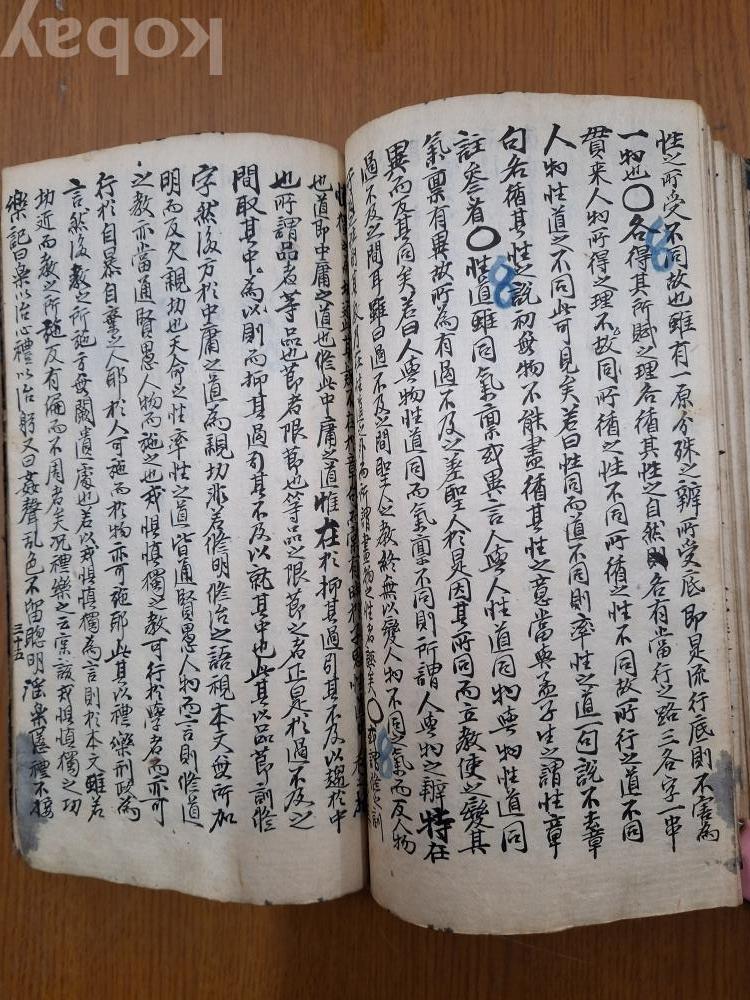 kobay
性之所受不同故也雖有一原分殊之辨所受底即是流行底則不害為
一物也○各得其所賦之理各循其性之自然則各有當行之路三各字一串
貫來人物所得之理不同故所循之性不同所循之性不同故所行之道不同
人物性道之不同此可見矣若曰性同而道不同則率性之道一句說不去章
句各循其性之說初無物不能盡循其性之意當與孟子生之謂性章
註參看○性道雖同氣稟或異言人與人性道同物與物性道同
氣稟有異故所為有過不及之差聖人於是因其所同而立教使之變其
異而反其同矣若曰人與物性道同而氣稟不同則所謂人與物之辨特在
過不及之間耳雖曰過不及之間聖人之教終無以變人物不同之氣而反人物
也道即中庸之道也修此中庸之道惟在於抑其過引其不及以趨於中
也所謂品者等品也節者限節也等品之限節之者正是於過不及之
間取其中為以則而抑其過引其不及以就其中也此其以品節訓修
字然後方於中庸之道為親切乖若修明修治之語視本文無所加
明而反欠親切也天命之性率性之道皆通賢愚人物而言則修道
之教亦當通賢愚人物而施之也戒惧慎獨之教可行於學者而亦可
行於自暴自棄之人耶於人可施而於物亦可施耶此其以禮樂刑政為
言然後教之所施方無闕遺處也若以戒惧慎獨為言則於本文雖若
切近而教之所施反有偏而不周者矣况禮樂之云家該戒惧慎獨之功
樂記曰樂以治心禮以治躬又曰姦聲乱色不留聰明淫樂慝禮不接
三十五